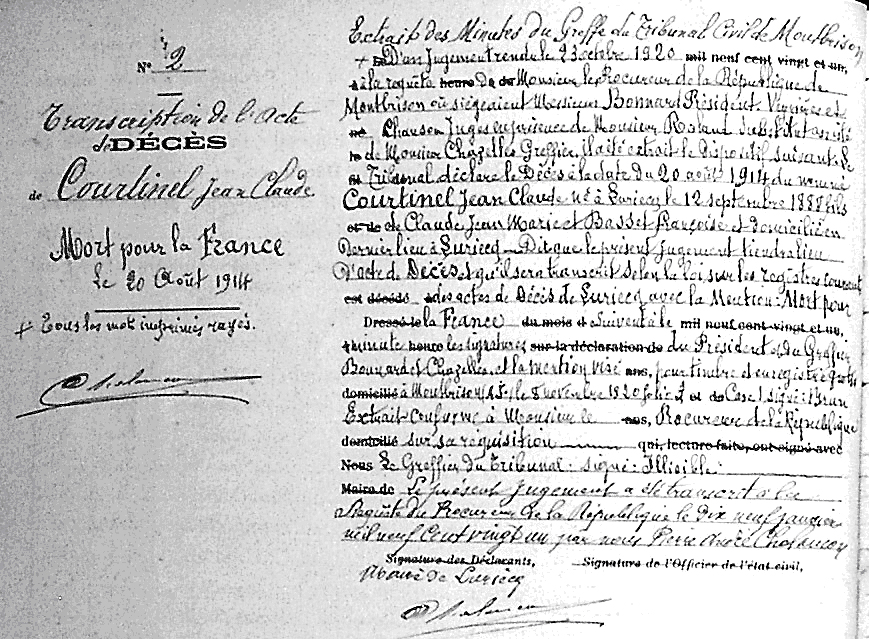 N° 2
Transcription de l'acte
de DÉCÈS
de Courtinel Jean Claude
Mort pour la France
le 20 Août 1914
+ Tous les mot imprimés rayés.
Extrait des Minutes du Greffe du Tribunal Civil de Montbrison
+ D'un Jugement rendu le 23 octobre 1920 mil neuf cent vingt et un,
à la requête heure de Monsieur le Procureur de la République de
Montbrison où siégeaient Messieurs Bonnard Président Verrières et
Chanson Juges en présence de Monsieur Roland Substitut assisté
de Monsieur Chazelles Greffier, il a été extrait le dispositif suivant : Le
Tribunal déclare le Décès à la date du 20 août 1914 du nommé
Courtinel Jean Claude né à Luriecq le 12 septembre 1888 fils
de Claude Jean Marie et Basset Françoise et domicilié en
Dernier lieu à Luriecq — Dit que le présent Jugement tiendra lieu
D'acte de Décès et qu'il sera transcrit selon la loi, sur les registres courant
est décédé des actes de Décès de Luriecq avec la Mention : Mort pour
Dressé le la France du mois d Suivent à le mil neuf cent vingt et un,
minute heure les signatures sur la déclaration de du Président et du Greffier
Bonnard et Chazelles, et la mention visé ans, pour timbre et enregistré gratis
domicilié à Montbrison A.J. le 8 novembre 1920 folio 2 Case 1 signé : Brun
Extrait conforme à Monsieur le ans, Procureur de la République
domicilié sur sa réquisition qui, lecture faite, ont signé avec
Nous Le Greffier du Tribunal : signé : Illisible :
Maire de Le présent Jugement a été transcrit à la
Requête du Procureur de la République le Dix neuf janvier
mil neuf Cent vingt un par nous Pierre André Chalancon
Signature des Déclarants, Signature de l'Officier de l'état civil,
Maire de Luriecq